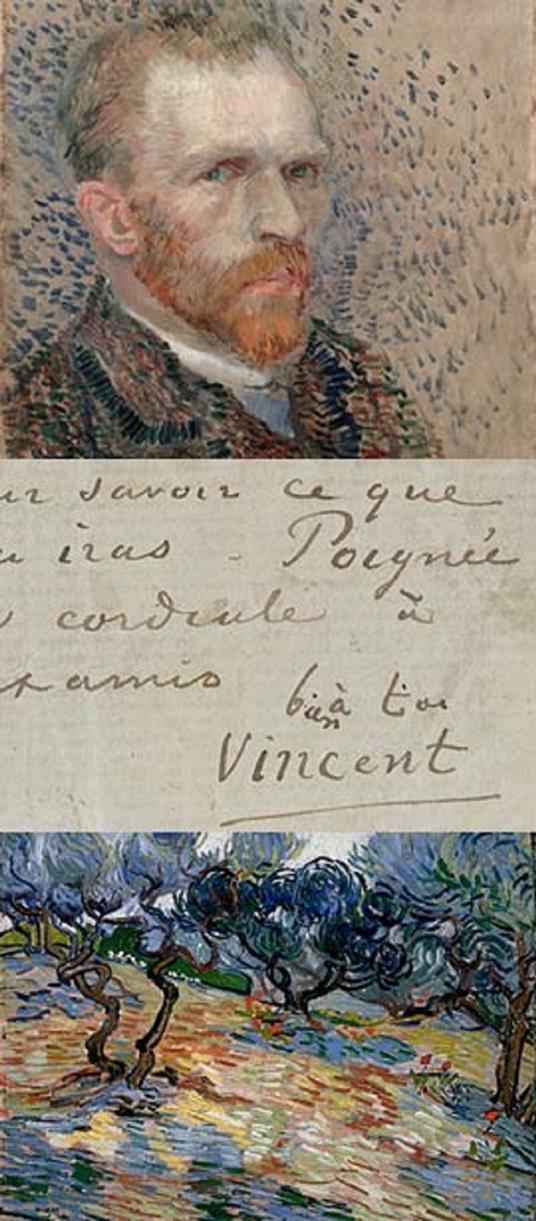 ur savoir ce que
u iras - Poignée
cordiale à
t amis
bien à toi
Vincent